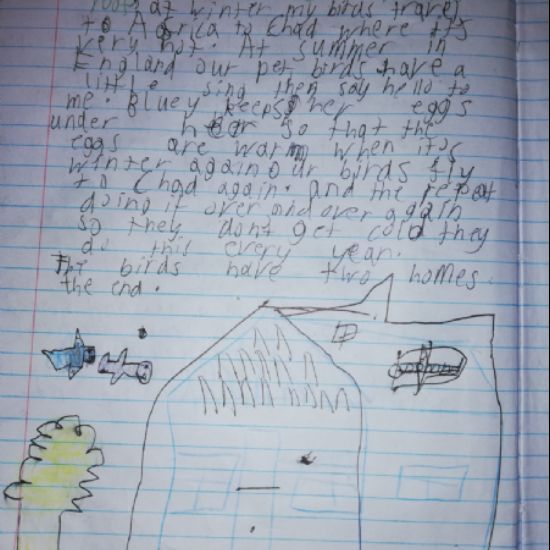 roof. at winter my birds travel
to Africa to Chad where it's
very hot. At summer in
England our pet birds have a
little sing then say hello to
me. Bluey keeps her eggs
under her so that the
eggs are warm when it's
winter again our birds fly
to Chad again. and the repeat
doing it over and over again
so they dont get cold they
do this every year.
The birds have two homes.
the end.